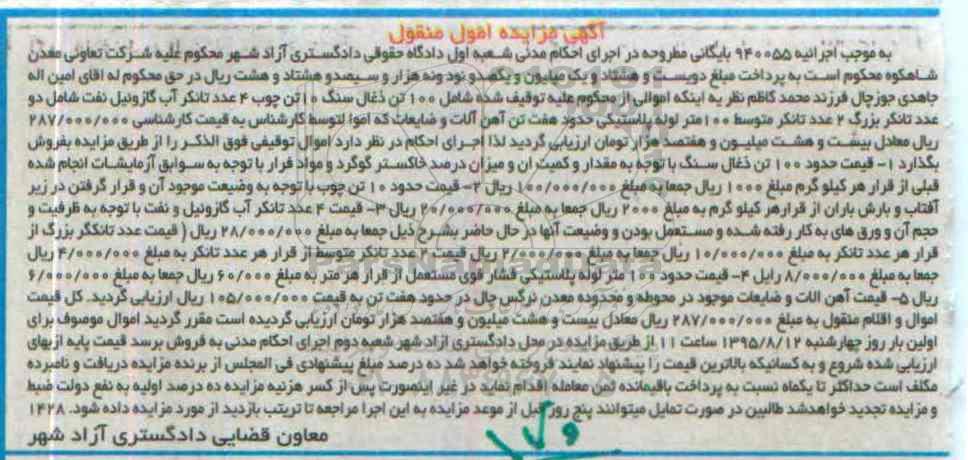 آگهی مزایده اموال منقول
به موجب اجرائیه ۹۴۰۰۵۵ بایگانی مطروحه در اجرای احکام مدنی شعبه اول دادگاه حقوقی دادگستری آزاد شهر محکوم علیه شرکت تعاونی معدن
شاهکوه محکوم است به پرداخت مبلغ دویست و هشتاد و یک میلیون و یکصدو نود ونه هزار و سیصدو هشتاد و هشت ریال در حق محکوم له اقای امین اله
جاهدی جوزچال فرزند محمد کاظم نظر به اینکه اموالی از محکوم علیه توقیف شده شامل ۱۰۰ تن ذغال سنگ ۱۰تن چوب ۴ عدد تانکر آب گازوئیل نفت شامل دو
عدد تانکر بزرگ ۲ عدد تانکر متوسط ۱۰۰متر لوله پلاستیکی حدود هفت تن آهن آلات و ضایعات که اموا لتوسط کارشناس به قیمت کارشناسی ۲۸۷/۰۰۰/۰۰۰
ریال معادل بیست و هشت میلیون و هفتصد هزار تومان ارزیابی گردید لذا اجرای احکام در نظر دارد اموال توقیفی فوق الذکر را از طریق مزایده بفروش
بگذارد ۱- قیمت حدود ۱۰۰ تن ذغال سنگ با توجه به مقدار و کمیت ان و میزان درصد خاکستر گوگرد و مواد فرار با توجه به سوابق آزمایشات انجام شده
قبلی از قرار هر کیلو گرم مبلغ ۱۰۰۰ ریال جمعا به مبلغ ۱۰۰/۰۰۰/۰۰۰ ریال ۲- قیمت حدود ۱۰ تن چوب با توجه به وضیعت موجود آن و قرار گرفتن در زیر
آفتاب و بارش باران از قرارهر کیلو گرم به مبلغ ۲۰۰۰ ریال جمعا به مبلغ ۲۰/۰۰۰/۰۰۰ ریال ۳- قیمت ۴ عدد تانکر آب گازوئیل و نفت با توجه به ظرفیت و
حجم آن و ورق های به کار رفته شده و مستعمل بودن و وضیعت آنها در حال حاضر بشرح ذیل جمعا به مبلغ ۲۸/۰۰۰/۰۰۰ ریال ( قیمت عدد تانگکر بزرگ از
قرار هر عدد تانکر به مبلغ ۱۰/۰۰۰/۰۰۰ ریال جمعا به مبلغ ۲۰/۰۰۰/۰۰۰ ریال قیمت ۲ عدد تانکر متوسط از قرار هر عدد تانکر به مبلغ ۴/۰۰۰/۰۰۰ ریال
جمعا به مبلغ ۸/۰۰۰/۰۰۰ رایل ۴- قیمت حدود ۱۰۰ متر لوله پلاستیکی فشار قوی مستعمل از قرار هر متر به مبلغ ۶۰/۰۰۰ ریال جمعا به مبلغ ۶/۰۰۰/۰۰۰
ریال ۵- قیمت آهن الات و ضایعات موجود در محوطه و محدوده معدن نرگس چال در حدود هفت تن به قیمت ۱۰۵/۰۰۰/۰۰۰ ریال ارزیابی گردید. کل قیمت
اموال و اقلام منقول به مبلغ ۲۸۷/۰۰۰/۰۰۰ ریال معادل بیست و هشت میلیون و هفتصد هزار تومان ارزیابی گردیده است مقرر گردید اموال موصوف برای
اولین بار روز چهارشنبه ۱۳۹۵/۸/۱۲ ساعت ۱۱ از طریق مزایده در محل دادگستری ازاد شهر شعبه دوم اجرای احکام مدنی به فروش برسد قیمت پایه ازبهای
ارزیابی شده شروع و به کسانیکه بالاترین قیمت را پیشنهاد نمایند فروخته خواهد شد ده درصد مبلغ پیشنهادی فی المجلس از برنده مزایده دریافت و نامبرده
مکلف است حداکثر تا یکماه نسبت به پرداخت باقیمانده ثمن معامله اقدام نماید در غیر اینصورت پس از کسر هزنیه مزایده ده درصد اولیه به نفع دولت ضبط
و مزایده تجدید خواهدشد طالبین در صورت تمایل میتوانند پنج روز قبل از موعد مزایده به این اجرا مراجعه تا تریتب بازدید از مورد مزایده داده شود. ۱۴۲۸
معاون قضایی دادگستری آزاد شهر